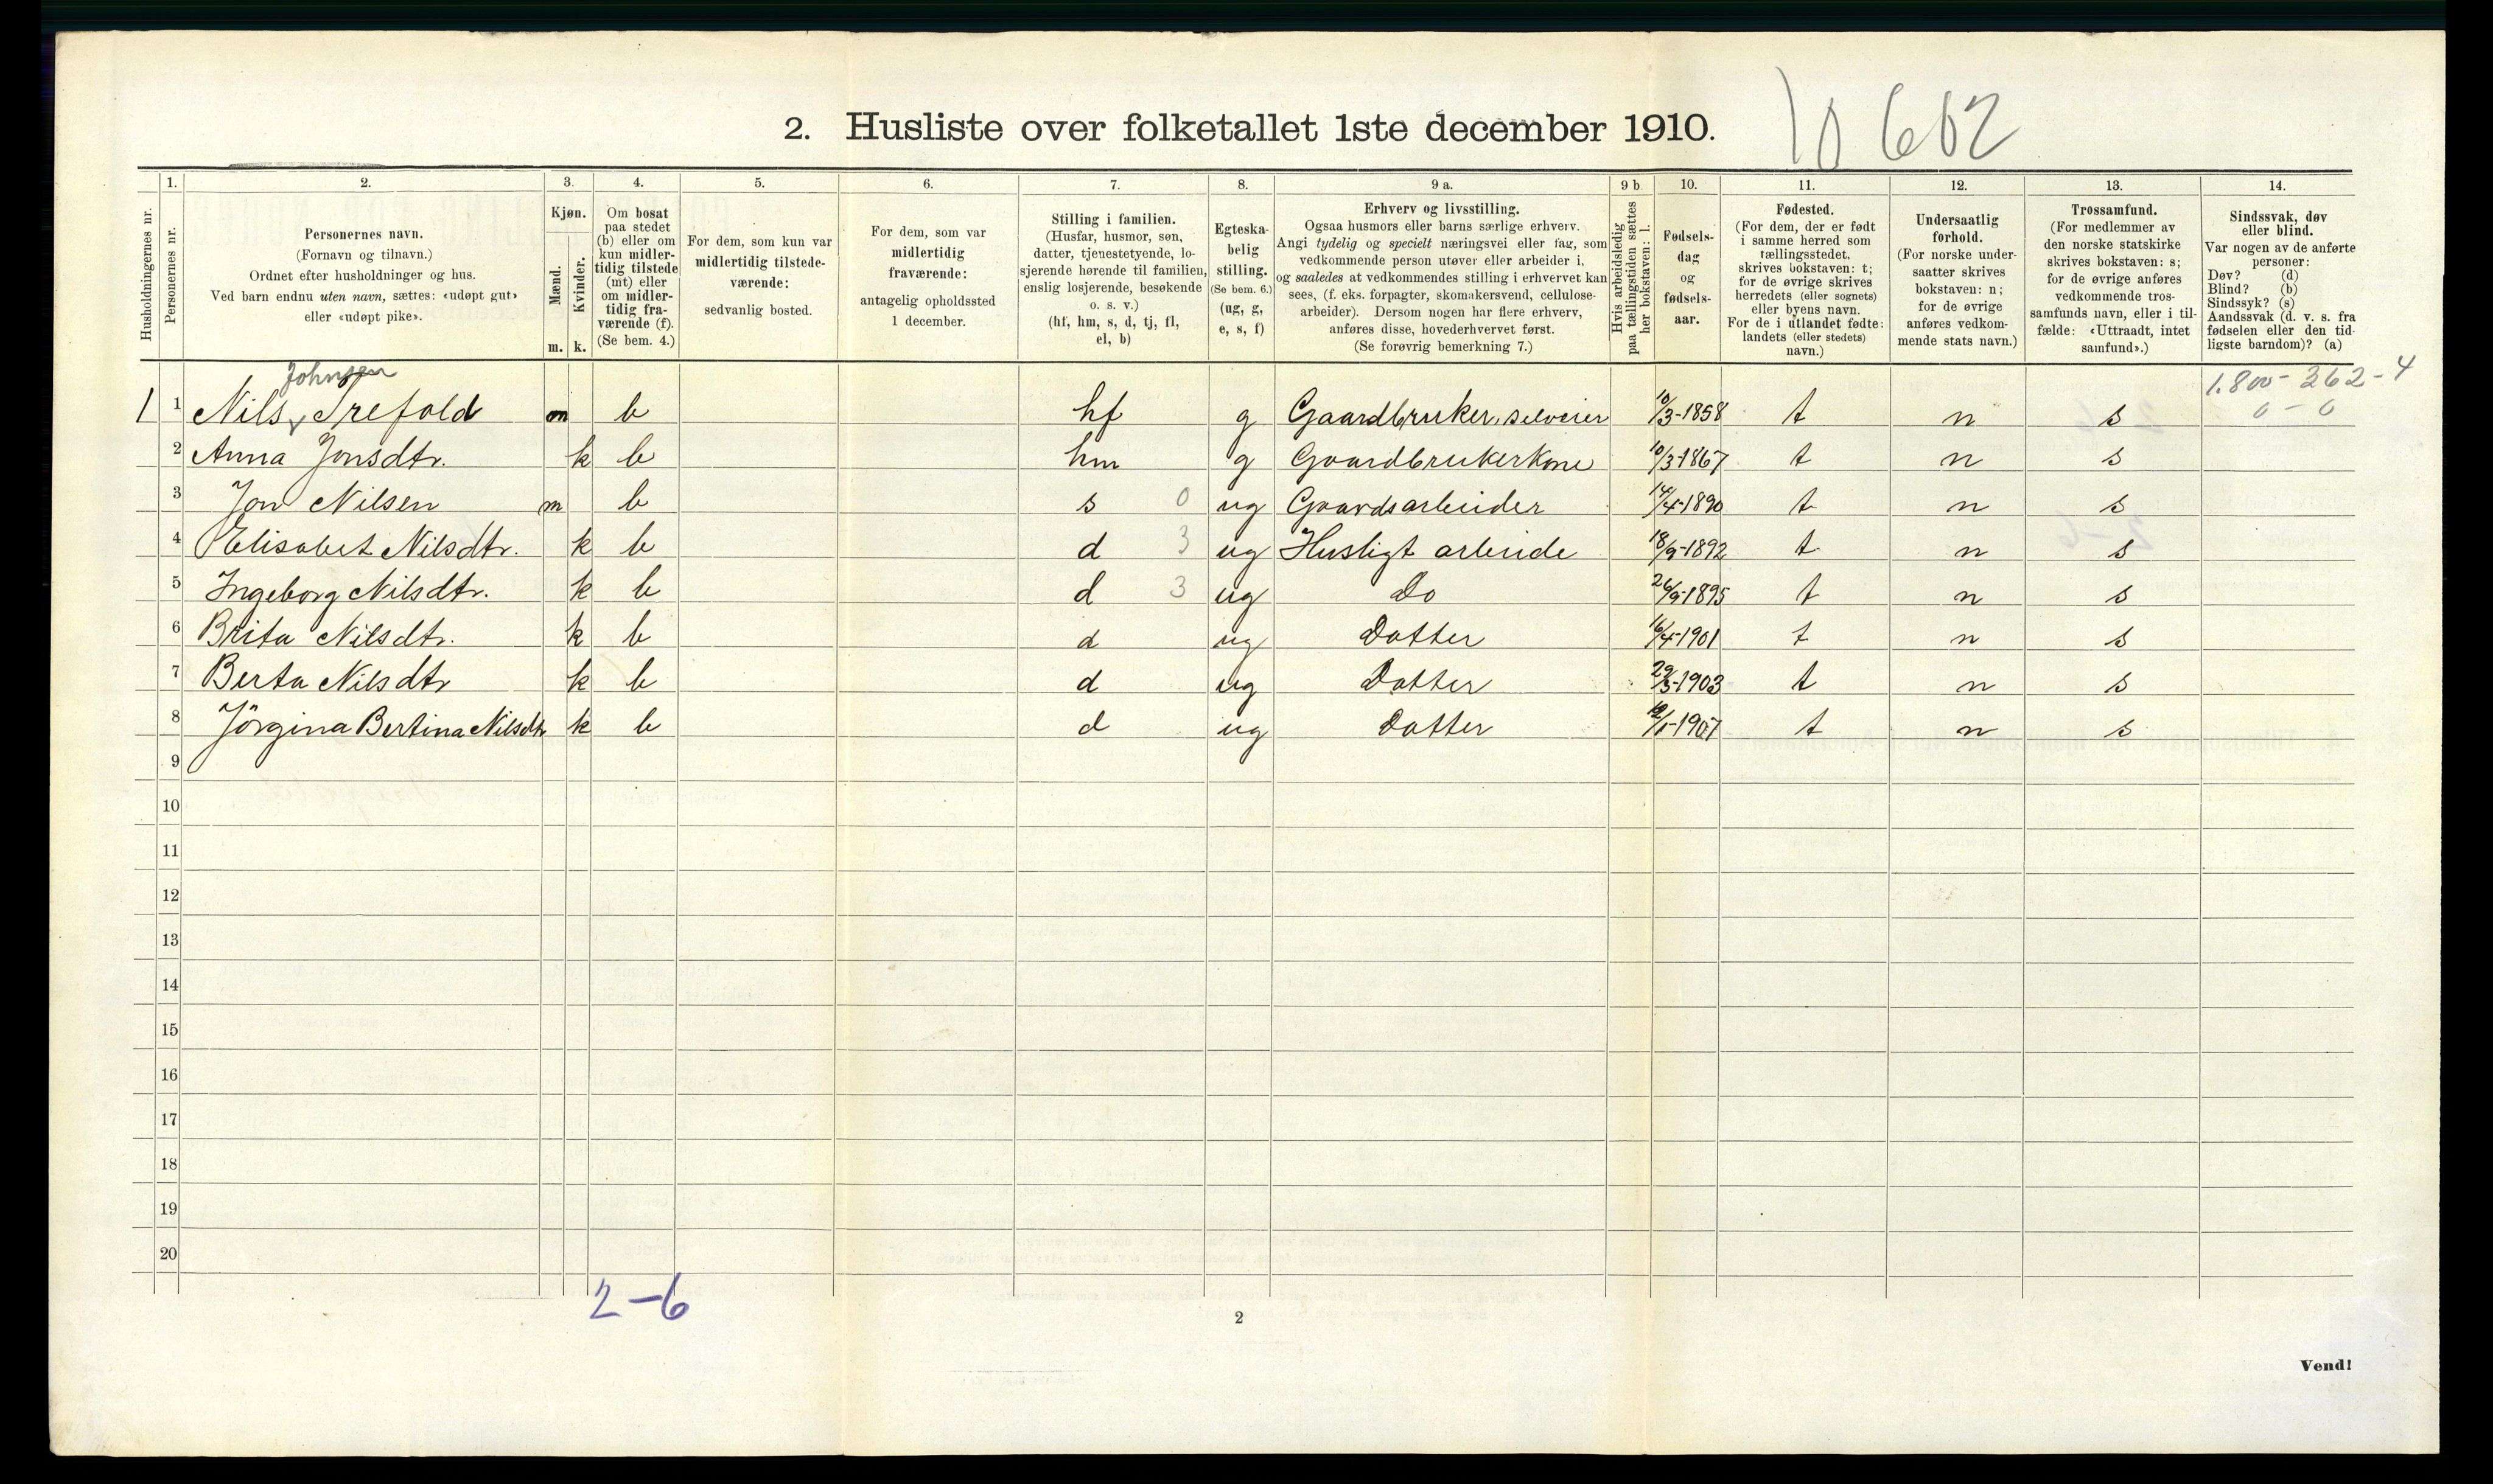 2. Husliste over folketallet 1ste december 1910.
10602
Husholdningernes nr.
1. Personernes nr.
2. Personernes navn.
(Fornavn og tilnavn.)
Ordnet efter husholdninger og hus.
Ved barn endnu uten navn, sættes: «udøpt gut»
eller «udøpt pike».
3. Kjøn.
Mænd. Kvinder.
m. k.
4. Om bosat
paa stedet
(b) eller om
kun midler-
tidig tilstede
(mt) eller
om midler-
tidig fra-
værende (f).
(Se bem. 4.)
5. For dem, som kun var
midlertidig tilstede-
værende:
sedvanlig bosted.
6. For dem, som var
midlertidig
fraværende:
antagelig opholdssted
1 december.
7. Stilling i familien.
(Husfar, husmor, søn,
datter, tjenestetyende, lo-
sjerende hørende til familien,
enslig losjerende, besøkende
o. s. v.)
(hf, hm, s, d, tj, fl,
el, b)
8. Egteska-
belig
stilling.
(Se bem. 6.)
(ug, g,
e, s, f)
9 a. Erhverv og livsstilling.
Ogsaa husmors eller barns særlige erhverv.
Angi tydelig og specielt næringsvei eller fag, som
vedkommende person utøver eller arbeider i,
og saaledes at vedkommendes stilling i erhvervet kan
sees, (f. eks. forpagter, skomakersvend, cellulose-
arbeider). Dersom nogen har flere erhverv,
anføres disse, hovederhvervet først.
(Se forøvrig bemerkning 7.)
9 b Hvis arbeidsledig
paa tællingstiden sættes
her bokstaven: l.
10. Fødsels-
dag
og
fødsels-
aar.
11. Fødested.
(For dem, der er født
i samme herred som
tællingsstedet,
skrives bokstaven: t;
for de øvrige skrives
herredets (eller sognets)
eller byens navn.
For de i utlandet fødte:
landets (eller stedets)
navn.)
12. Undersaatlig
forhold.
(For norske under-
saatter skrives
bokstaven: n;
for de øvrige
anføres vedkom-
mende stats navn.)
13. Trossamfund.
(For medlemmer av
den norske statskirke
skrives bokstaven: s;
for de øvrige anføres
vedkommende tros-
samfunds navn, eller i til-
fælde: «Uttraadt, intet
samfund».)
14. Sindssvak, døv
eller blind.
Var nogen av de anførte
personer:
Døv? (d)
Blind? (b)
Sindssyk? (s)
Aandssvak (d. v. s. fra
fødselen eller den tid-
ligste barndom)? (a)
Johnsen 1.800-362-4
1 1 Nils Trefald m b hf g Gaardbruker, selveier 10/3-1858 t n s 0-0
2 Anna Jonsdtr. k b hm g Gaardbrukerkone 10/3-1867 t n s
3 Jon Nilsen m b s 0 ug Gaardsarbeider 14/4-1890 t n s
4 Elisabet Nilsdtr. k b d 3 ug Husligt arbeide 18/9-1892 t n s
5 Ingeborg Nilsdtr. k b d 3 ug Do 26/9-1895 t n s
6 Brita Nilsdtr. k b d ug Datter 16/4-1901 t n s
7 Berta Nilsdtr k b d ug Datter 29/3-1903 t n s
8 Jörgina Bertina Nilsdtr k b d ug Datter t n s
9
10
11
12
13
14
15
16
17
18
19
20
2-6
2
Vend!